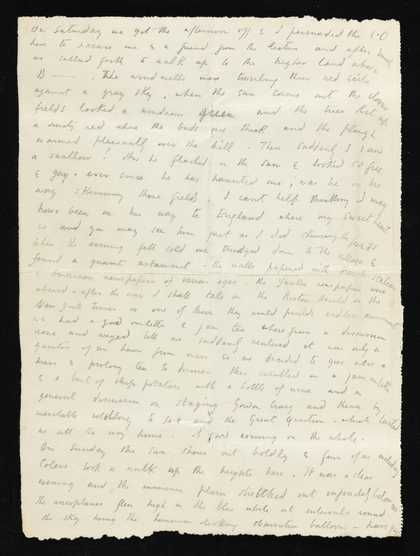 On Saturday we got the afternoon off & I persuaded the C.O
here to excuse me & a friend from the lecture and after lunch
we sallied forth to walk up to the higher land above
B——. The windmills were twirling their red sails
against a gray sky, when the sun came out the clover
fields looked a wondrous green and the trees that
a rusty red where the buds are thick and the plough
wormed pleasantly over the hill. Then suddenly I saw
a swallow! As he flashed in the sun & looked so free
& gay - ever since he has haunted me, was he on his
way skimming those fields. I can't help thinking I may
have been on his way to England where my sweetheart
is and you may see him just as I did skimming the fields
When the evening fell cold we trudged down to the village &
found a quaint restaurant - the walls papered with French Italian
& American newspapers of various ages. The Yankee newspapers were
absurd - after the war I shall take in the
New York Times as one of these they would provide endless amusement
we had a good omlette & jam tea when from a discussion
we suddenly realized it was only a
quarter of an hour from mess so we decided to give
mess & prolong tea to dinner. This resulted in a jam omlette
& a dish of chip potatoes with a bottle of wine and a
general discussion on staging, Gordon Craig and thence by
inevitable to sex and the Great Question - which lasted
us all the way home. A good evening on the whole.
On Sunday the sun shone out boldly & four of us including
took a walk up the heights here. It was a clear
evening and the immense plain stretched out unfolded below us
the aeroplanes flew high in the blue whilst at intervals round
the sky hung the humorous looking observation balloons -